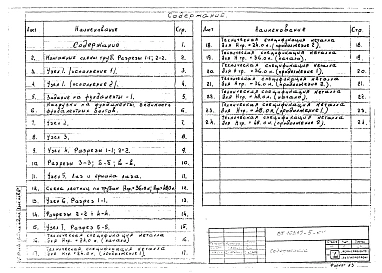 Содержание
Лист Наименование Стр.
Содержание 1.
2. Монтажные схемы труб. Разрезы 1-1; 2-2. 2.
3. Узел 1. (исполнение 1) 3.
4. Узел 1. (исполнение 2) 4.
5. Задание на фундаменты 5.
6. Нагрузки на фундаменты, ведомость фундаментных болтов. 6.
7. Узел 2. 7.
8. Узел 3. 8.
9. Узел 4. Разрезы 1-1; 2-2. 9.
10. Разрезы 3-3; 5-5; 6-6. 10.
11. Узел 5. Лаз и крышка лаза. 11.
12. 12.
13. Узел 6. Разрез 1-1. 13.
14. Разрезы 2-2 ÷ 4-4. 14.
15. Узел 7. Разрез 5-5. 15.
16. Техническая спецификация металла для Нтр. = 24.0 м. (начало) 16.
17. Техническая спецификация металла для Нтр. = 24.0 м. (продолжение 1) 17.
Лист Наименование Стр.
18. Техническая спецификация металла для Нтр. = 24.0 м. (продолжение 2). 18.
19. Техническая спецификация металла для Нтр. = 36.0 м. (начало). 19.
20. Техническая спецификация металла для Нтр. = 36.0 м. (продолжение 1). 20.
21. Техническая спецификация металла для Нтр. = 36.0 м. (продолжение 2). 21.
22. Техническая спецификация металла для Нтр. = 48.0 м. (начало). 22.
23. Техническая спецификация металла для Нтр. = 48.0 м. (продолжение 1) 23.
24. Техническая спецификация металла для Нтр. = 48.0 м. (продолжение 2). 24.
Содержание